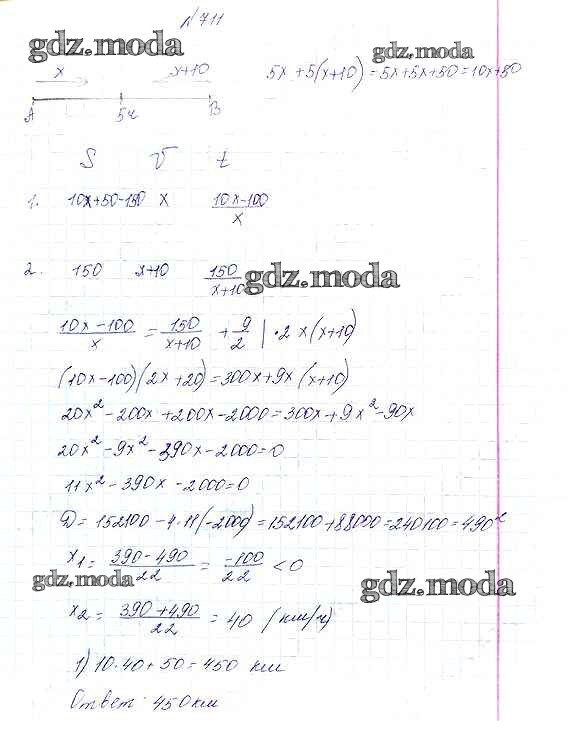 № 711
gdz.moda
gdz.moda
x x+10 5x + 5(x+10) = 5x+5x+50 = 10x+50
A 5ч B
S V t
1. 10x+50-150 x (10x-100)/x
2. 150 x+10 150/(x+10)
gdz.moda
(10x-100)/x = 150/(x+10) + 9/2 | · 2x(x+10)
(10x-100)(2x+20) = 300x+9x(x+10)
20x² - 200x + 200x - 2000 = 300x + 9x² - 90x
20x² - 9x² - 390x - 2000 = 0
11x² - 390x - 2000 = 0
D = 152100 - 4·11(-2000) = 152100 + 88000 = 240100 = 490²
x₁ = (390-490)/22 = -100/22 < 0
gdz.moda
gdz.moda
x₂ = (390+490)/22 = 40 (км/ч)
1) 10·40+50 = 450 км
Ответ: 450км